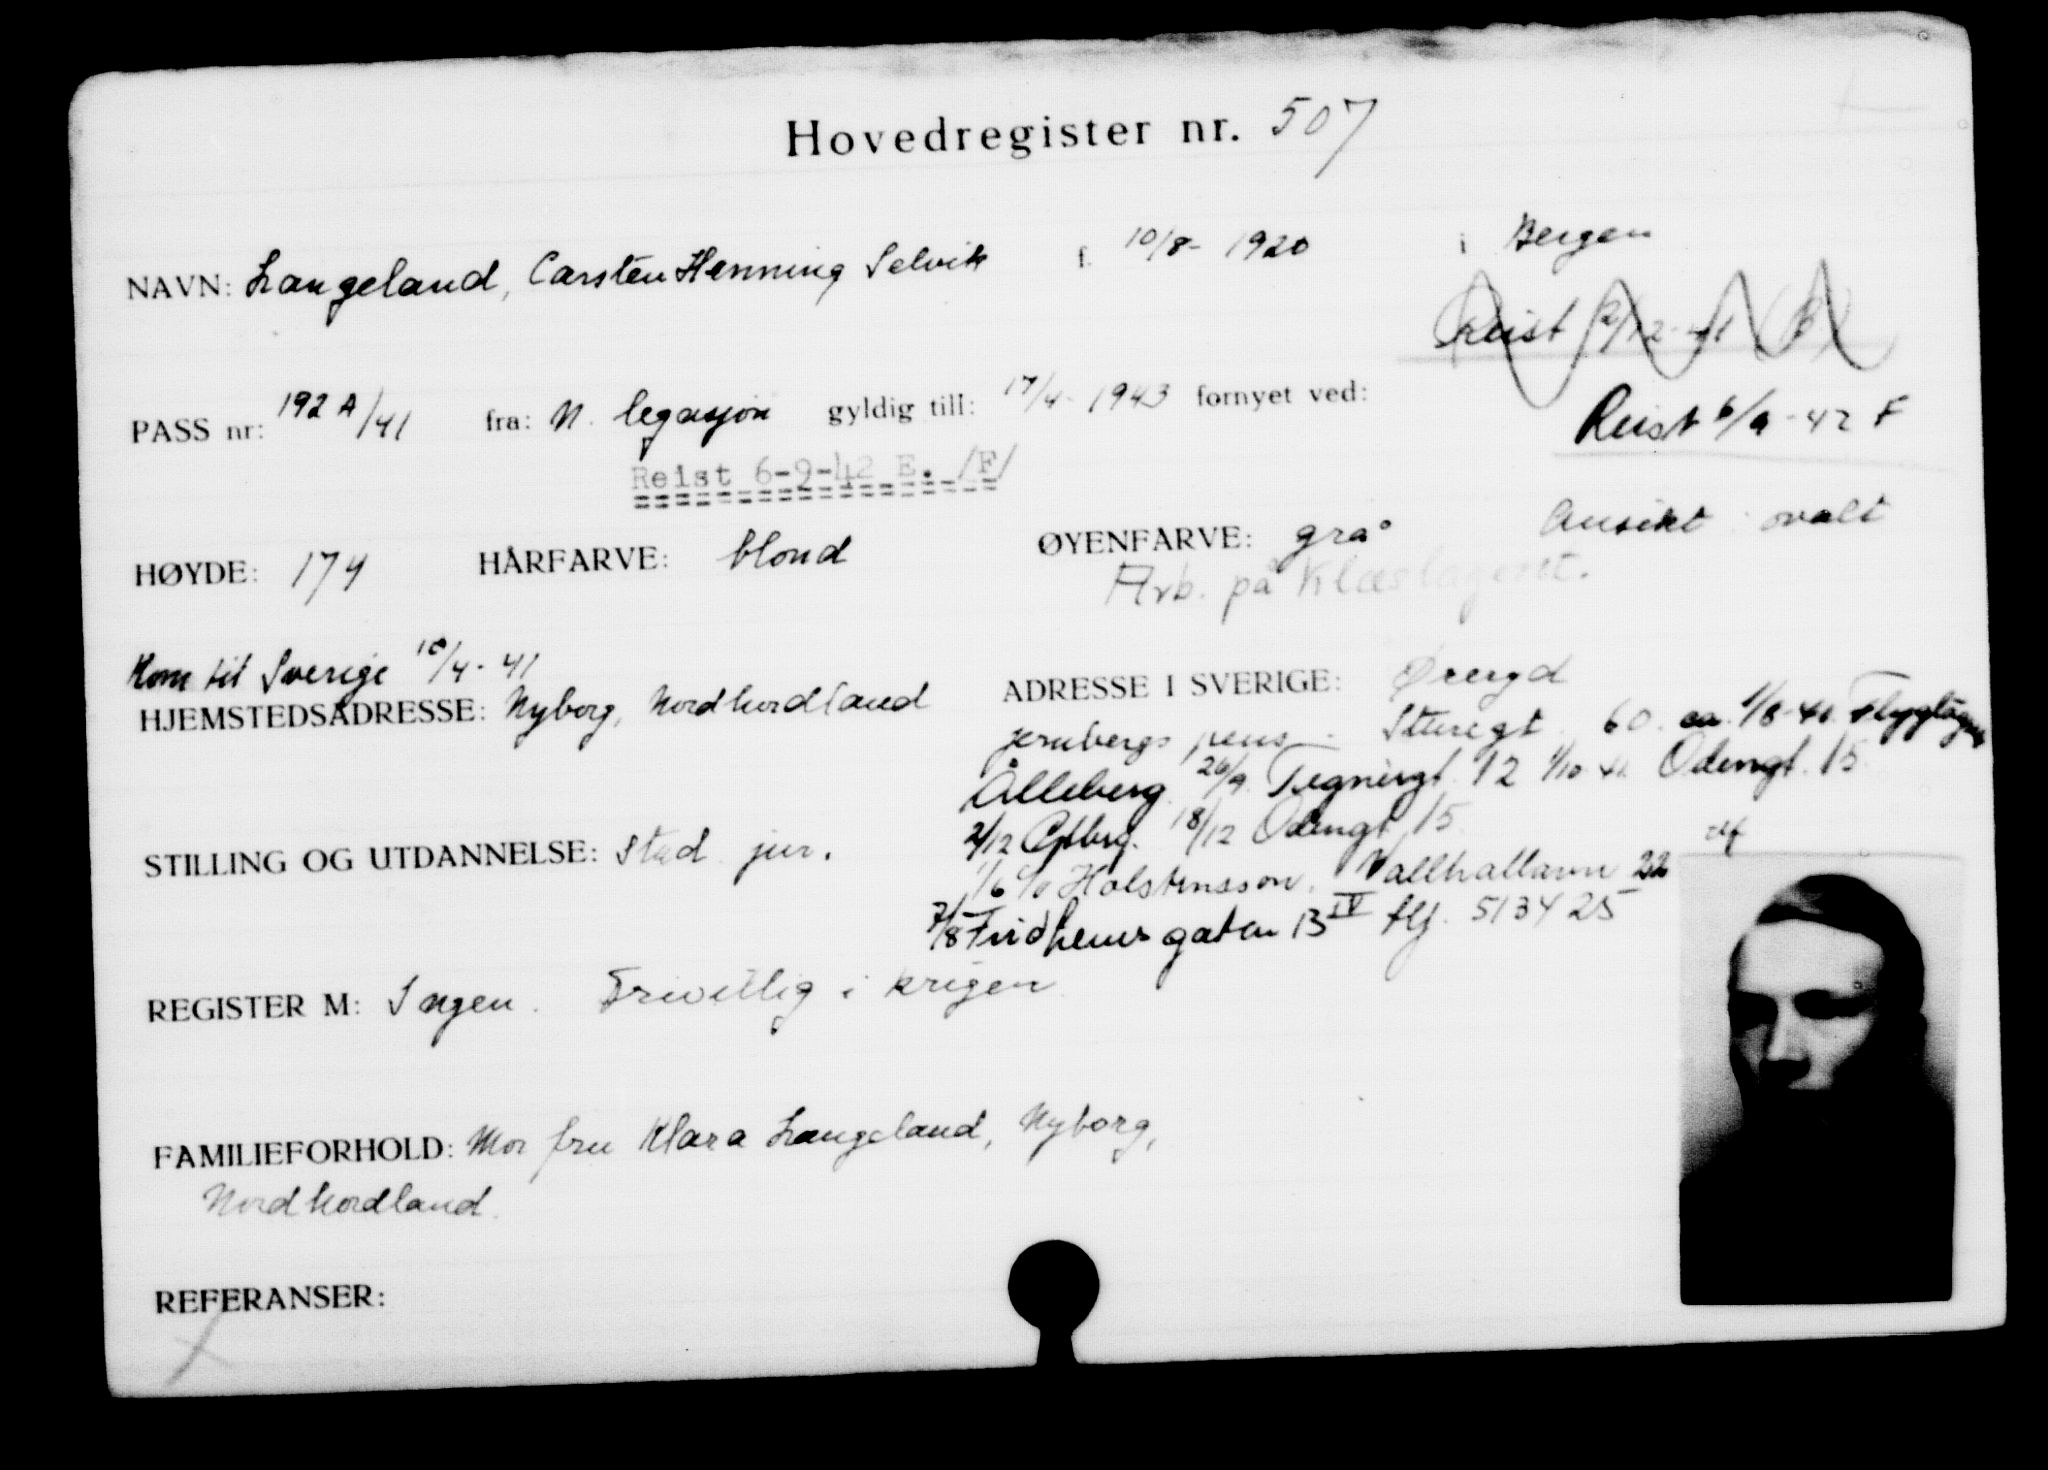 Hovedregister nr. 507
NAVN: Langeland, Carsten Henning Selvik f. 10/8- 1920 i Bergen
Reist 2/12-41 (B)
PASS nr: 192 A/41 fra: N. legasjon gyldig till: 17/4- 1943 fornyet ved:
Reist 6/9-42 F
Reist 6-9-42 E. /F/
HØYDE: 174 HÅRFARVE: blond ØYENFARVE: grå Ansikt ovalt
Arb. på Klæslageret.
Kom til Sverige 10/4-41
HJEMSTEDSADRESSE: Nyborg, Nordhordland ADRESSE I SVERIGE: Øreryd
jernbergs pens. Sturegt. 60. ca. 1/8-41 Flyglägret
Ålleberg. 26/9. Tegnérgt. 12 1/10-41. Odengt. 15.
2/12 Gtbrg. 18/12 Odengt. 15
STILLING OG UTDANNELSE: stud. jur.
1/6 c/o Holstensson, Vallhallavn 22
7/8 Fridhemsgaten 13 IV tlf. 513425
REGISTER M: Ingen. Frivillig i krigen
FAMILIEFORHOLD: Mor fru Klara Langeland, Nyborg,
Nordhordland.
REFERANSER: